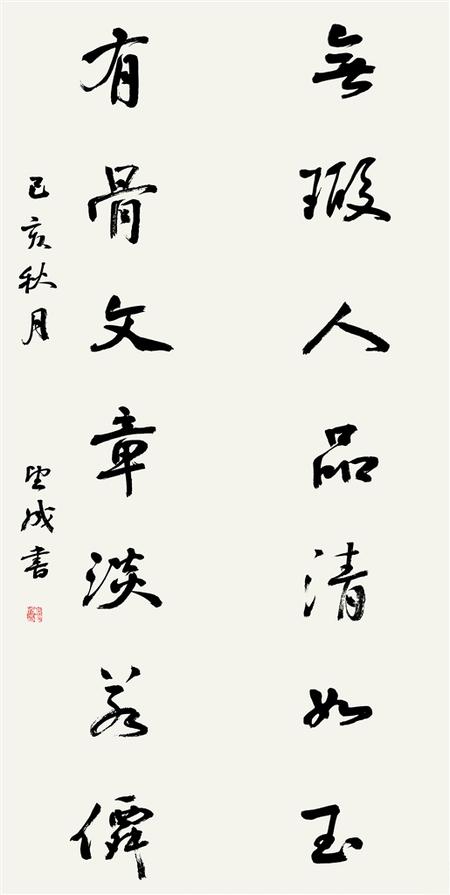 無瑕人品清如玉
有骨文章淡若僊
己亥秋月
成書